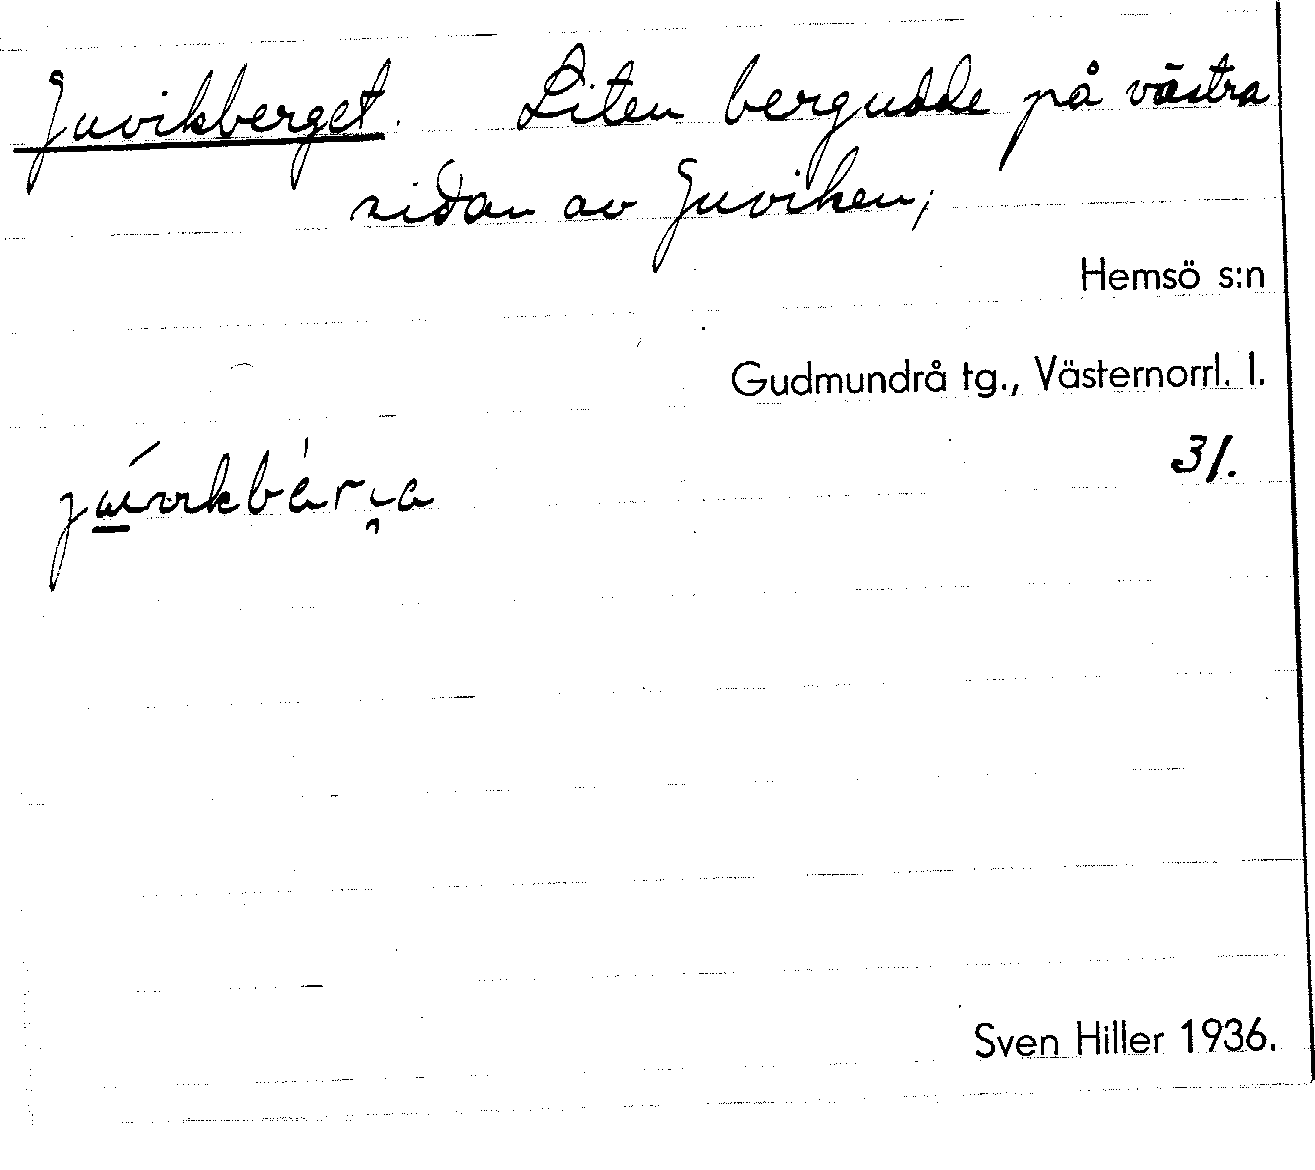 Juvikberget. Liten bergudde på västra
sidan av Juviken;
Hemsö s:n
Gudmundrå tg., Västernorrl. l.
31.
Sven Hiller 1936.